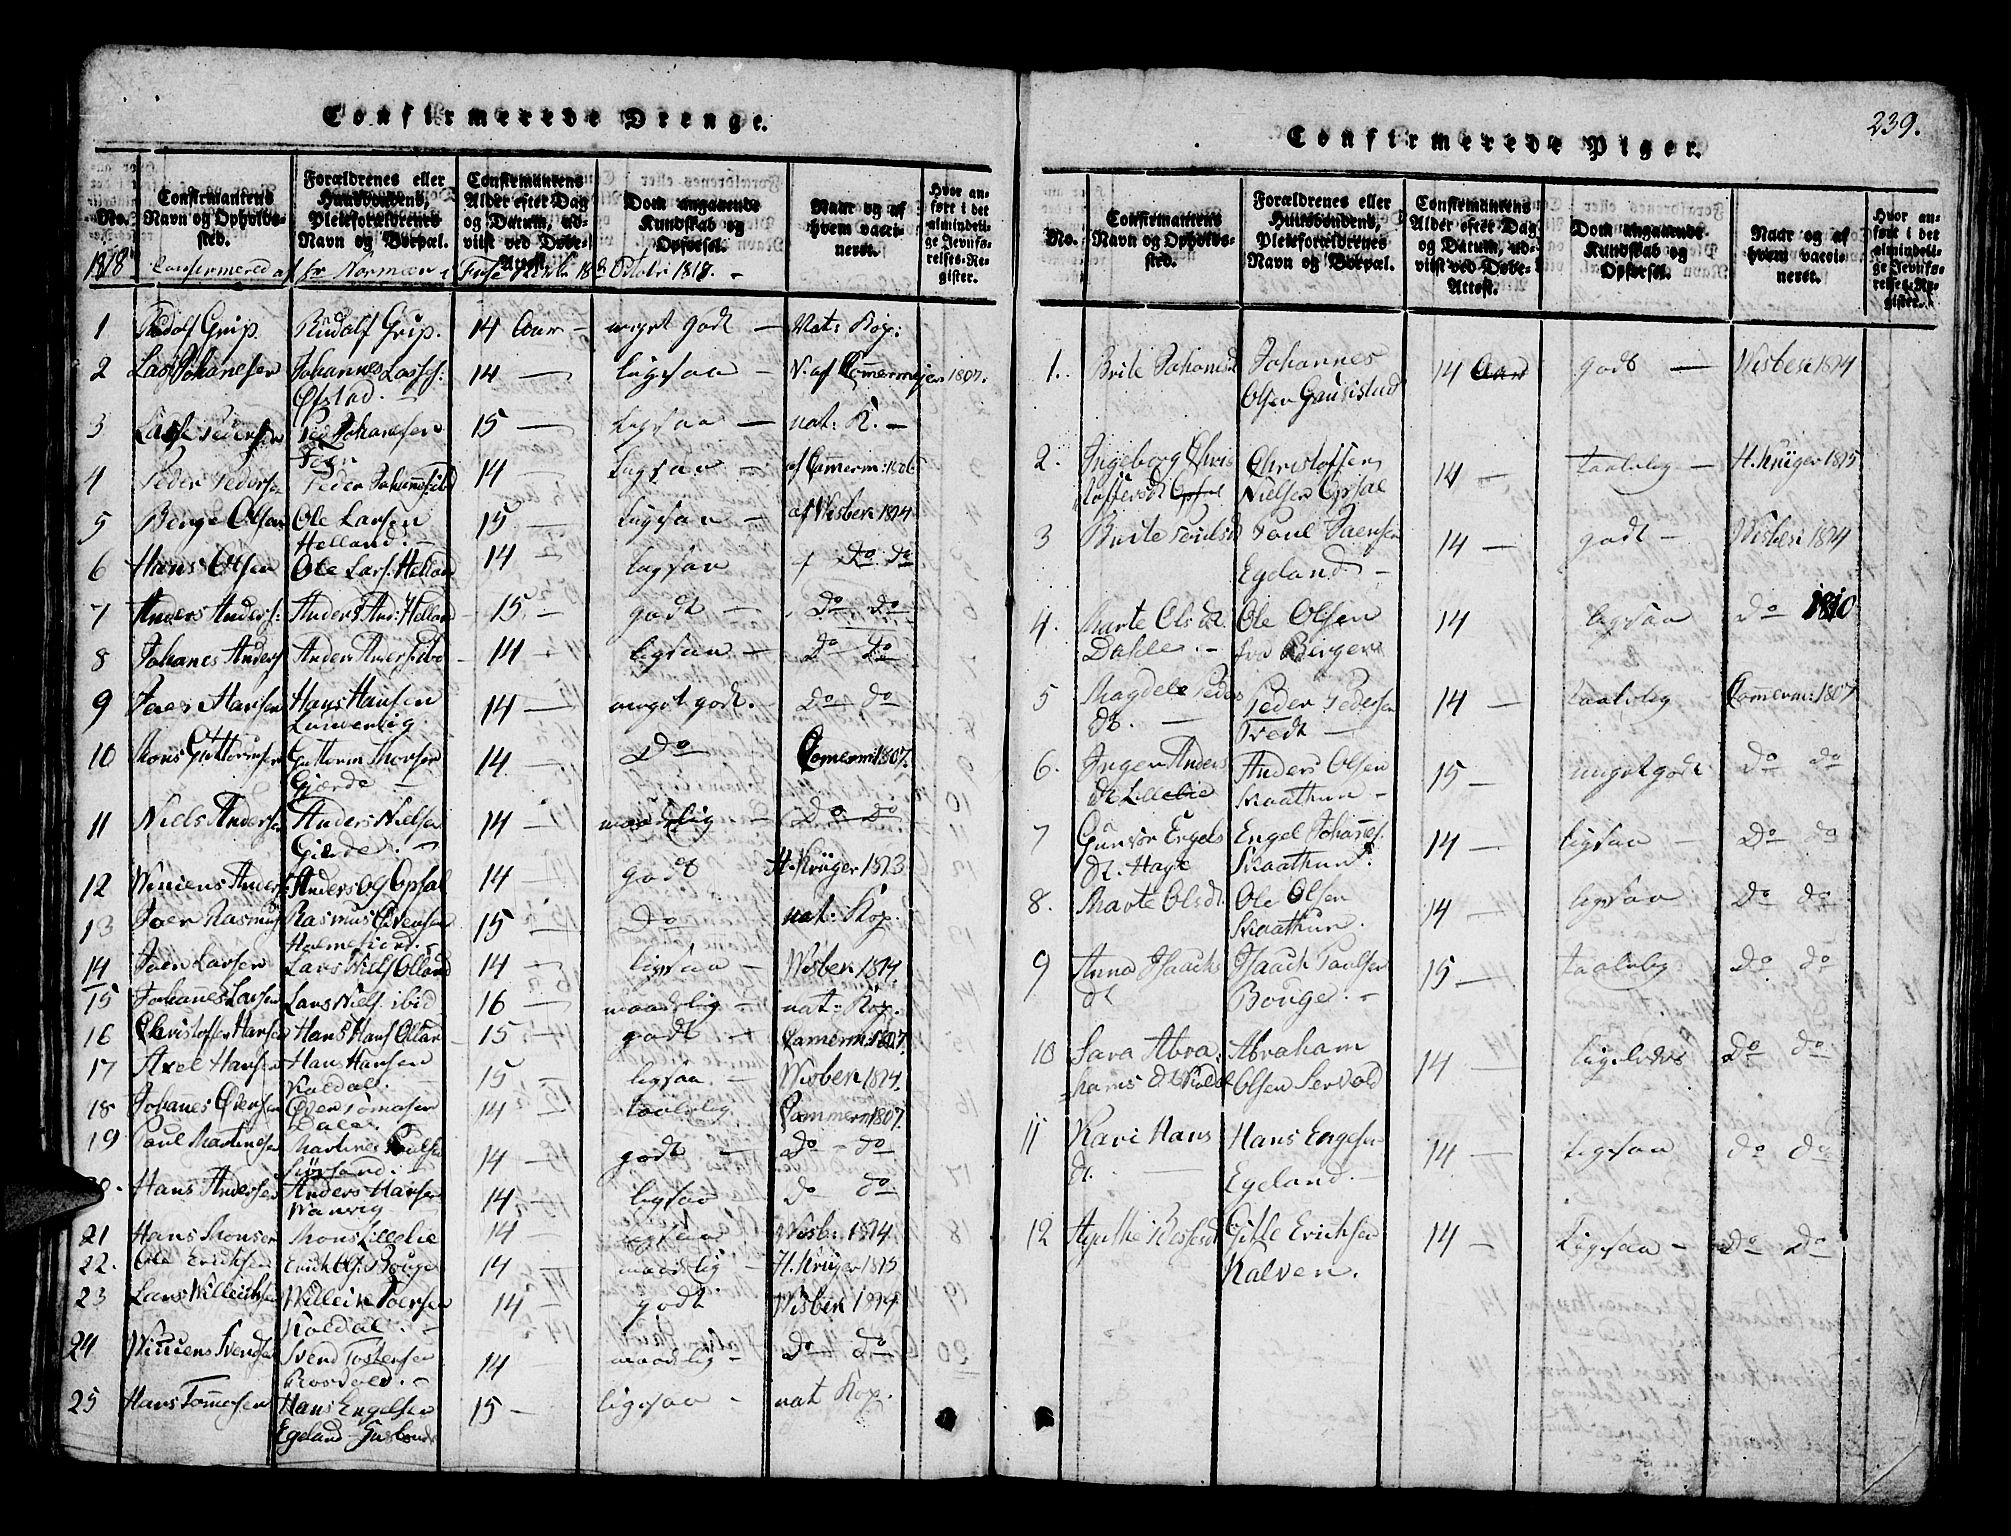 Confirmerede Drenge.
No.
Confirmantens Navn og Opholds-sted.
Forældrenes eller Huusbondens, Pleieforældrenes Navn og Borpæl.
Confirmantens Alder efter Dag og Datum, ud-viist ved Døbe-Attest.
Dom angaaende Kundskab og Opførsel.
Naar og af hvem vacci-neret.
Hvor an-ført i det almindeli-ge Jevnfø-relses-Re-gister.
1818 Confirmered af hr Norman i Fuse Kirke 18 October 1818. -
1 Rudolf Grip Rudolf Grip. 14 Aar - meget godt - Nat: Kop:
2 Lars Johanesen Johannes Lasses: Øfstad. 14 - ligesaa - N: af Camermejer 1807.
3 Lasse Pedersen Ped Johansen 15 - ligesaa - nat: K. -
4 Peder Pedersen Peder Johannes 14 - ligesaa - af Camerm: 1806
5 Børge Olsen Ole Larsen Helland. - 15 - ligesaa - af Wisbek 1814
6 Hans Olsen Ole Lars: Helland 14 - ligesaa - Do Do
7 Anders Anders: Anders And: Helland 15 - godt - Do Do
8 Johanes Anders Anders Anders ibd 14 - ligesaa - Do Do
9 Joen Hansen Hans Hansen 14 - meget godt. - Do do
10 Mons Guttormsen Guttorm Monsen Gjerde - 14 - Do Camerm: 1807.
11 Niels Andersen Anders Nielsen Gierde. - 14 - maadelig - Do Do
12 Winiens Anders Anders Ols Opsal 14 - godt H. Krüger 1813
13 Joen Rasmus Rasmus Evensen Holmefiord. - 15 - Do nat: Kop.
14 Joen Larsen Lars Niels Olland 14 - ligesaa - Wisbek 1814
15 Johanes Larsen Lars Niels: ibid 16 - maadelig - nat: Kop.
16 Christoffer Hansen Hans Hans Olland 15 - godt Camerm: 1807.
17 Axel Hansen Hans Hansen Koldal. 15 - ligesaa - Wisbek 1814.
18 Johanes Øversen Øver Tomasen Dale. 14 taalelig Cammerm 1807.
19 Paul Martinesen Martines Poulsen 14 - godt - Do - do
20. Hans Andersen Anders Hansen Wanvig - 14 - ligesaa Do do
21 Hans Monsen Mons Lillelie 14 - ligesaa Wisbe: 1814
22. Ole Ericksen Erick Ols: Bouge 14 - maadelig - H. Krüger 1815
23 Lars Willeichsen Willeik Joensen Koldal. - 14 - godt Wisbek 1814
24 Winiens Svendsen Svend Tostensen 14 maadelig - Do do
25 Hans Tommesen Hans Engelsen Egeland 15 - ligesaa - nat Kop.
239.
Confirmerede Piger.
No.
Confirmantens Navn og Opholds-sted.
Forældrenes eller Huusbondens, Pleieforældrenes Navn og Borpæl.
Confirmantens Alder efter Dag og Datum, ud-viist ved Døbe-Attest.
Dom angaaende Kundskab og Opførsel.
Naar og af hvem vacci-neret.
Hvor an-ført i det almindeli-ge Jevnfø-relses-Re-gister.
1. Brite Johanesd Johannes Olsen 14 Aar godt - Wisbek 1814
2. Ingeborg Chris toffersdt Opsal Christoffer Nielsen Opsal 14 - taalelig - H. Krüger 1815
3 Brite Poulsd Poul Joensen Egeland - 14 - godt - Wisbek 1814
4. Marte Ols dt Dahle. - Ole Olsen 14 ligesaa Do 1810
5 Magdele Peders dt. - Peder Pedersen Tvedt - 14 - taalelig Camerm: 1807
6. Inger Anders dt Lillelie Anders Olsen Skaathun - 15 - meget godt Do do
7 Gunvor Engels dt. Engel Johannes: Skaathun 14 - ligesaa - Do do
8. Marte Olsdt. Ole Olsen Skaathun. 14 - ligesaa Do do
9 Anna Isaachs dt Isaach Poulsen Bouge. - 15 - taalelig Do do
10 Sara Abra hams dt Abraham Olsen 14 - ligeledes Do do
11 Kari Hans dt. - Hans Engelsen Egeland. - 14 - ligesaa do do
12 Gitle Ericksen Kalven. 14 - ligesaa - Do Do